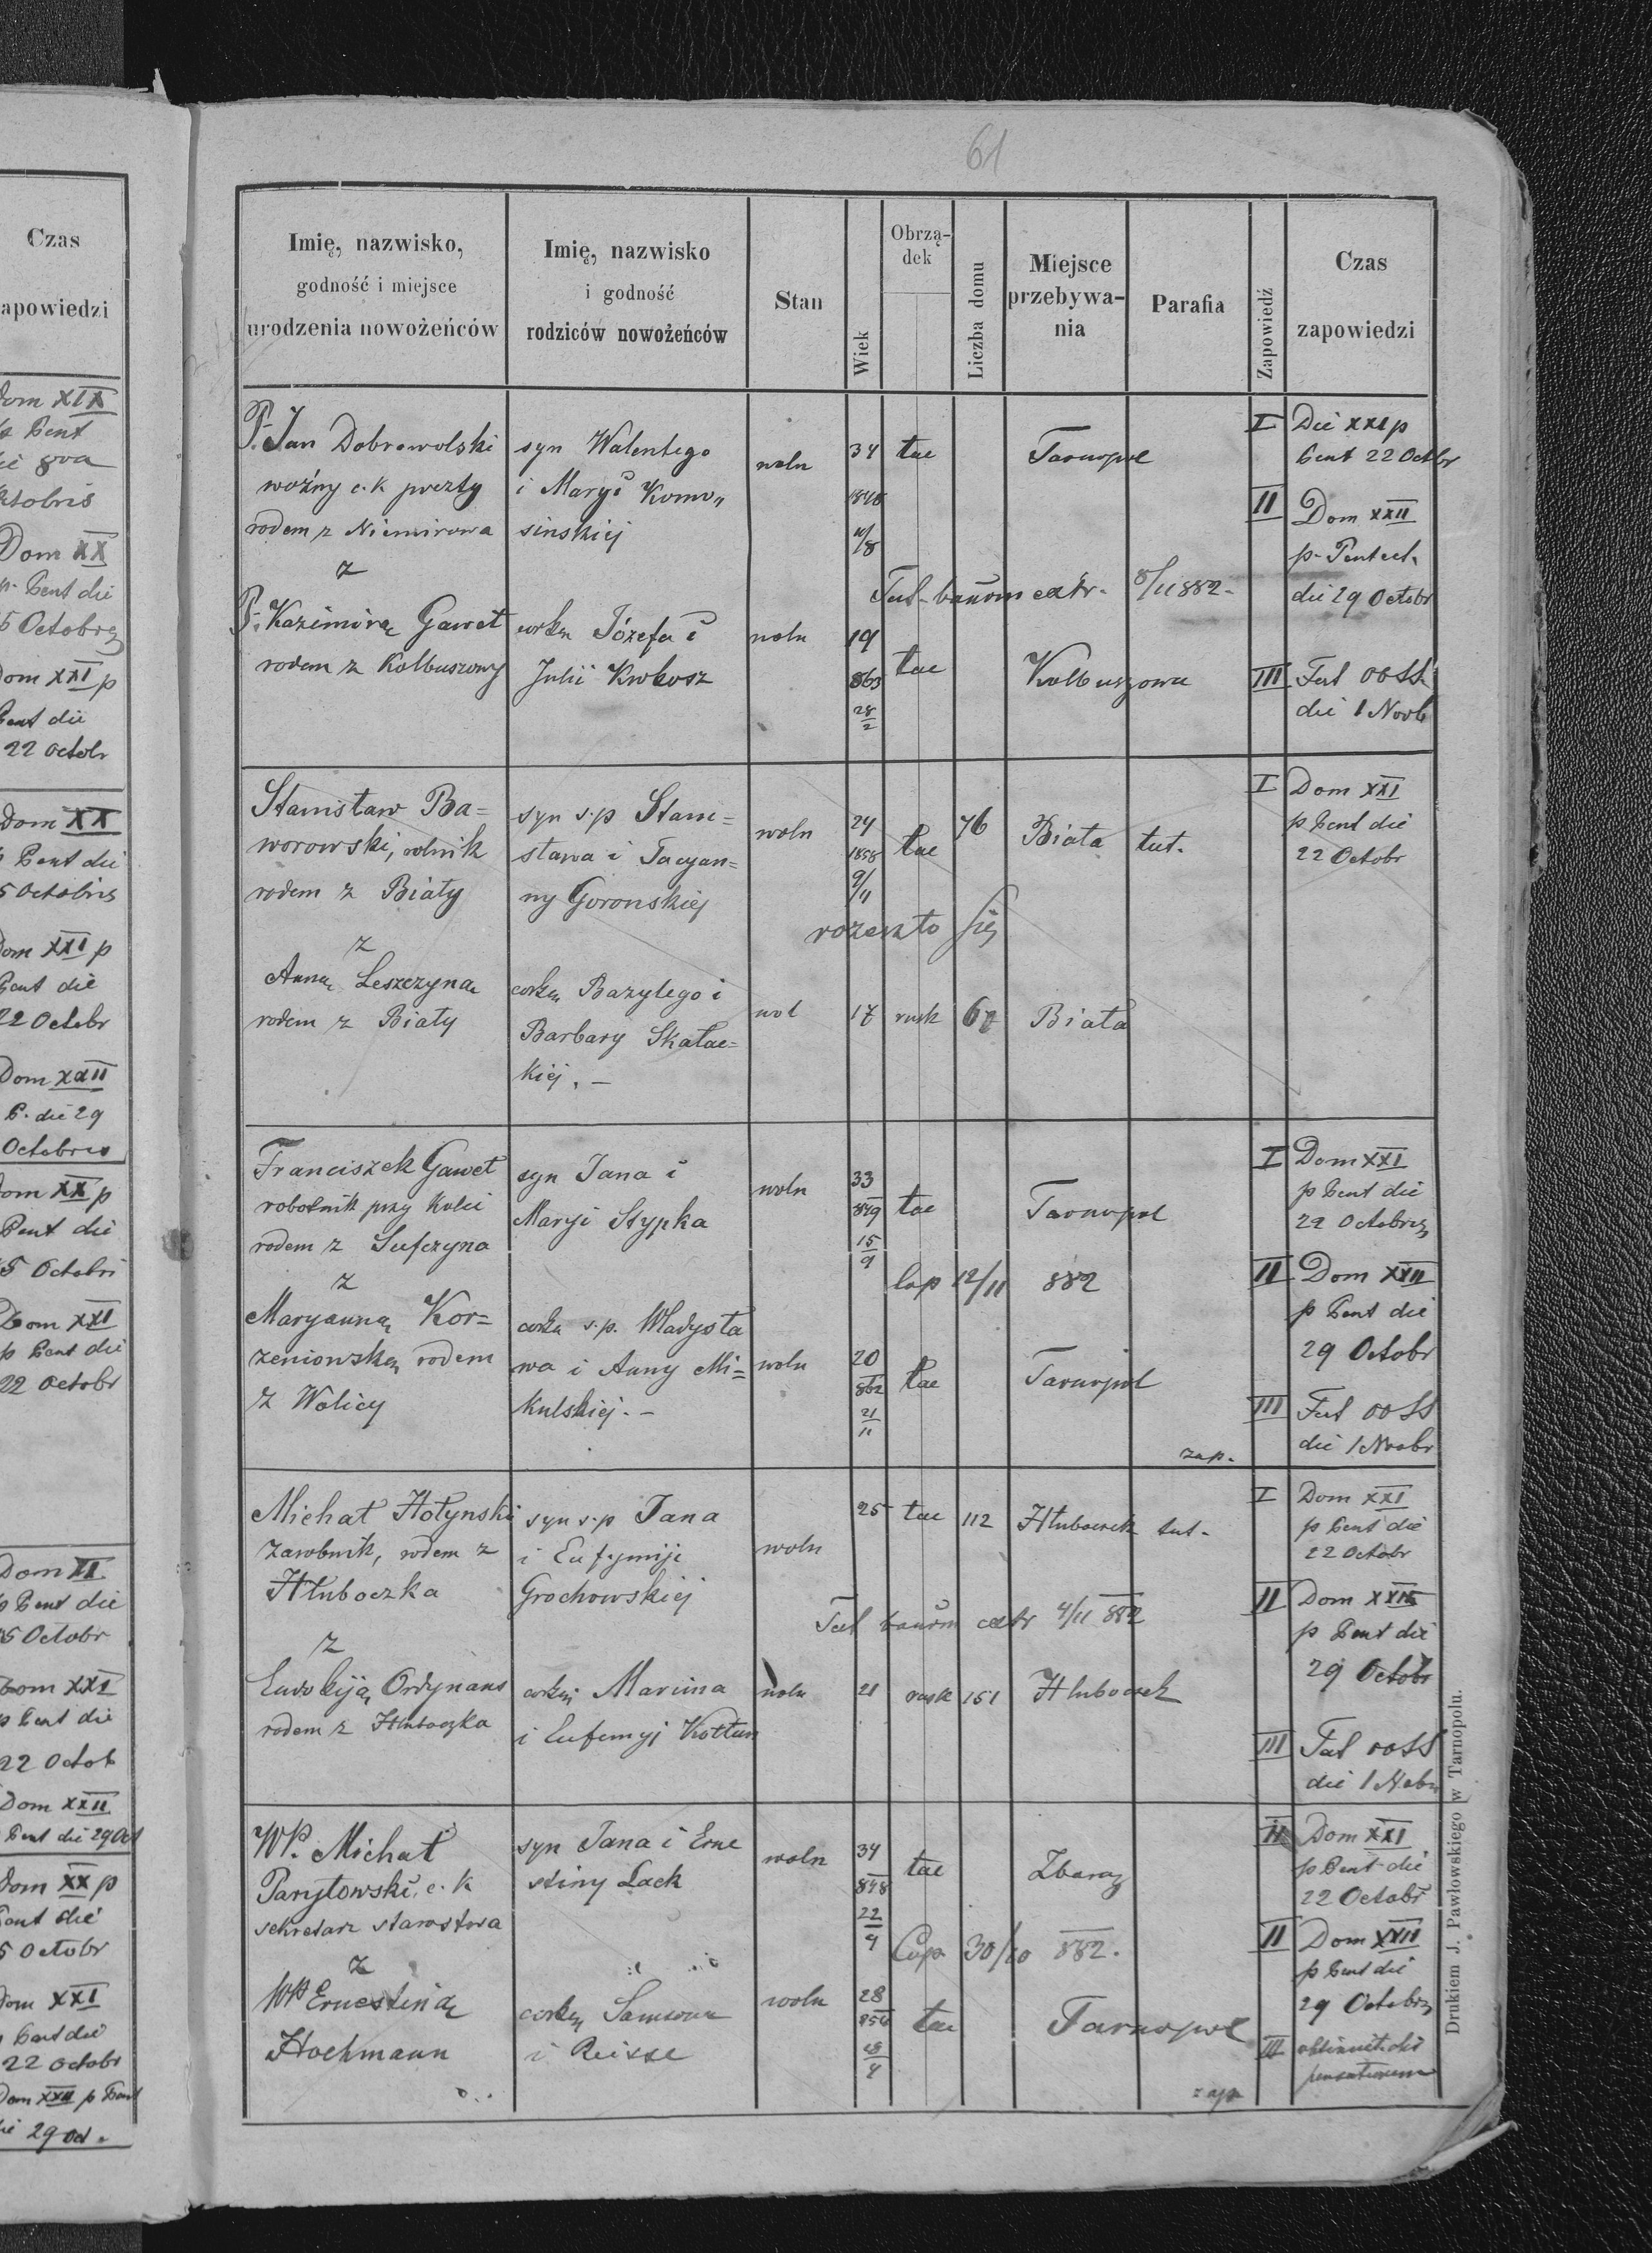 Czas
zapowiedzi
Dom XIX
Dom XX
p. Pent die
Dom XXI p
Pent die
22 Octobr
Dom XX
p Pent die
15 Octobris
Dom XXI p
Pent die
22 Octobr
Dom XXII
P. die 29
Octobris
Dom XX p
Pent die
15 Octobri
Dom XXI
p Pent die
22 Octobr
p Pent die
15 Octobr
Dom XXI
p Pent die
22 Octob
Dom XXII
Pent die 29 Oct
Dom XX p
Pent die
15 Octobr
Dom XXI
p Pent die
22 Octobr
Dom XXII p Pent
die 29 Oct.
61
Imię, nazwisko,
godność i miejsce
urodzenia nowożeńców
Imię, nazwisko
i godność
rodziców nowożeńców
Stan
Wiek
Obrzą-
dek
Liczba domu
Miejsce
przebywa-
nia
Parafia
Zapowiedź
Czas
zapowiedzi
P. Jan Dobrowolski
woźny c. k poczty
rodem z Niemirowa
z
P. Kazimirą Gaweł
rodem z Kolbuszowy
syn Walentego
i Maryi Komo„
sinskiej
corką Józefa i
Julii Krokosz
woln
woln
34
1848
19
863
28
2
łac
łac
Tarnopol
Kolbuszowa
8/11 882.
I
Die XXI p
Pent 22 Octbr
II
Dom XXII
p. Pentect.
die 29 Octobr
III
Fest OOSS
die 1 Novb
Stanisław Ba=
worowski, rolnik
rodem z Biały
z
Anną Leszczyną
rodem z Biały
syn s.p Stani=
sława i Tacyan=
ny Goronskiej
corką Bazylego i
Barbary Skałac=
kiej. –
woln
wol
24
1858
9/11
17
łac
rusk
76
67
Biała
Biała
tut.
rozeszło się
I
Dom XXI
p Pent die
22 Octobr
Franciszek Gaweł
robotnik przy kolei
rodem z Sufczyna
z
Maryanną Kor=
zeniowską rodem
z Wolicy
syn Jana i
Maryi Stypka
corka s.p. Władysła
wa i Anny Mi=
kulskiej. –
woln
woln
33
849
15
9
20
862
21
11
łac
łac
Tarnopol
Cop 12/11 882
Tarnopol
zap.
I
Dom XXI
p Pent die
22 Octobris
II
Dom XXII
p Pent die
29 Octobr
III
Fest OOSS
die 1 Novbr
Michał Hołynski
zarobnik, rodem z
Hłuboczka
z
Ewdokiją Ordynans
rodem z Hłuboczka
syn s.p Jana
i Eufymiji
Grochowskiej
corką Marcina
i Eufemyi Kołtun
woln
woln
25
21
łac
rusk
112
151
Hłuboczek
Hłuboczek
tut.
4/11 882
I
Dom XXI
p Pent die
22 Octobr
II
Dom XXII
p Pent die
29 Octobr
III
Fest OOSS
die 1 Nobr
WP. Michał
Paryłowski, c. k
sekretarz starostwa
z
WP Ernestiną
Hochmann
syn Jana i Erne
stiny Lack
corką Samsona
i Reisse
woln
woln
34
848
22
9
28
854
28
4
łac
łac
Zbaraż
Cop 30/10 882.
Tarnopol
zap
II
Dom XXI
p Pent die
22 Octobr
II
Dom XXII
p Pent die
29 Octobris
III
obtinuit dis
pensationem
Drukiem J. Pawłowskiego w Tarnopolu.